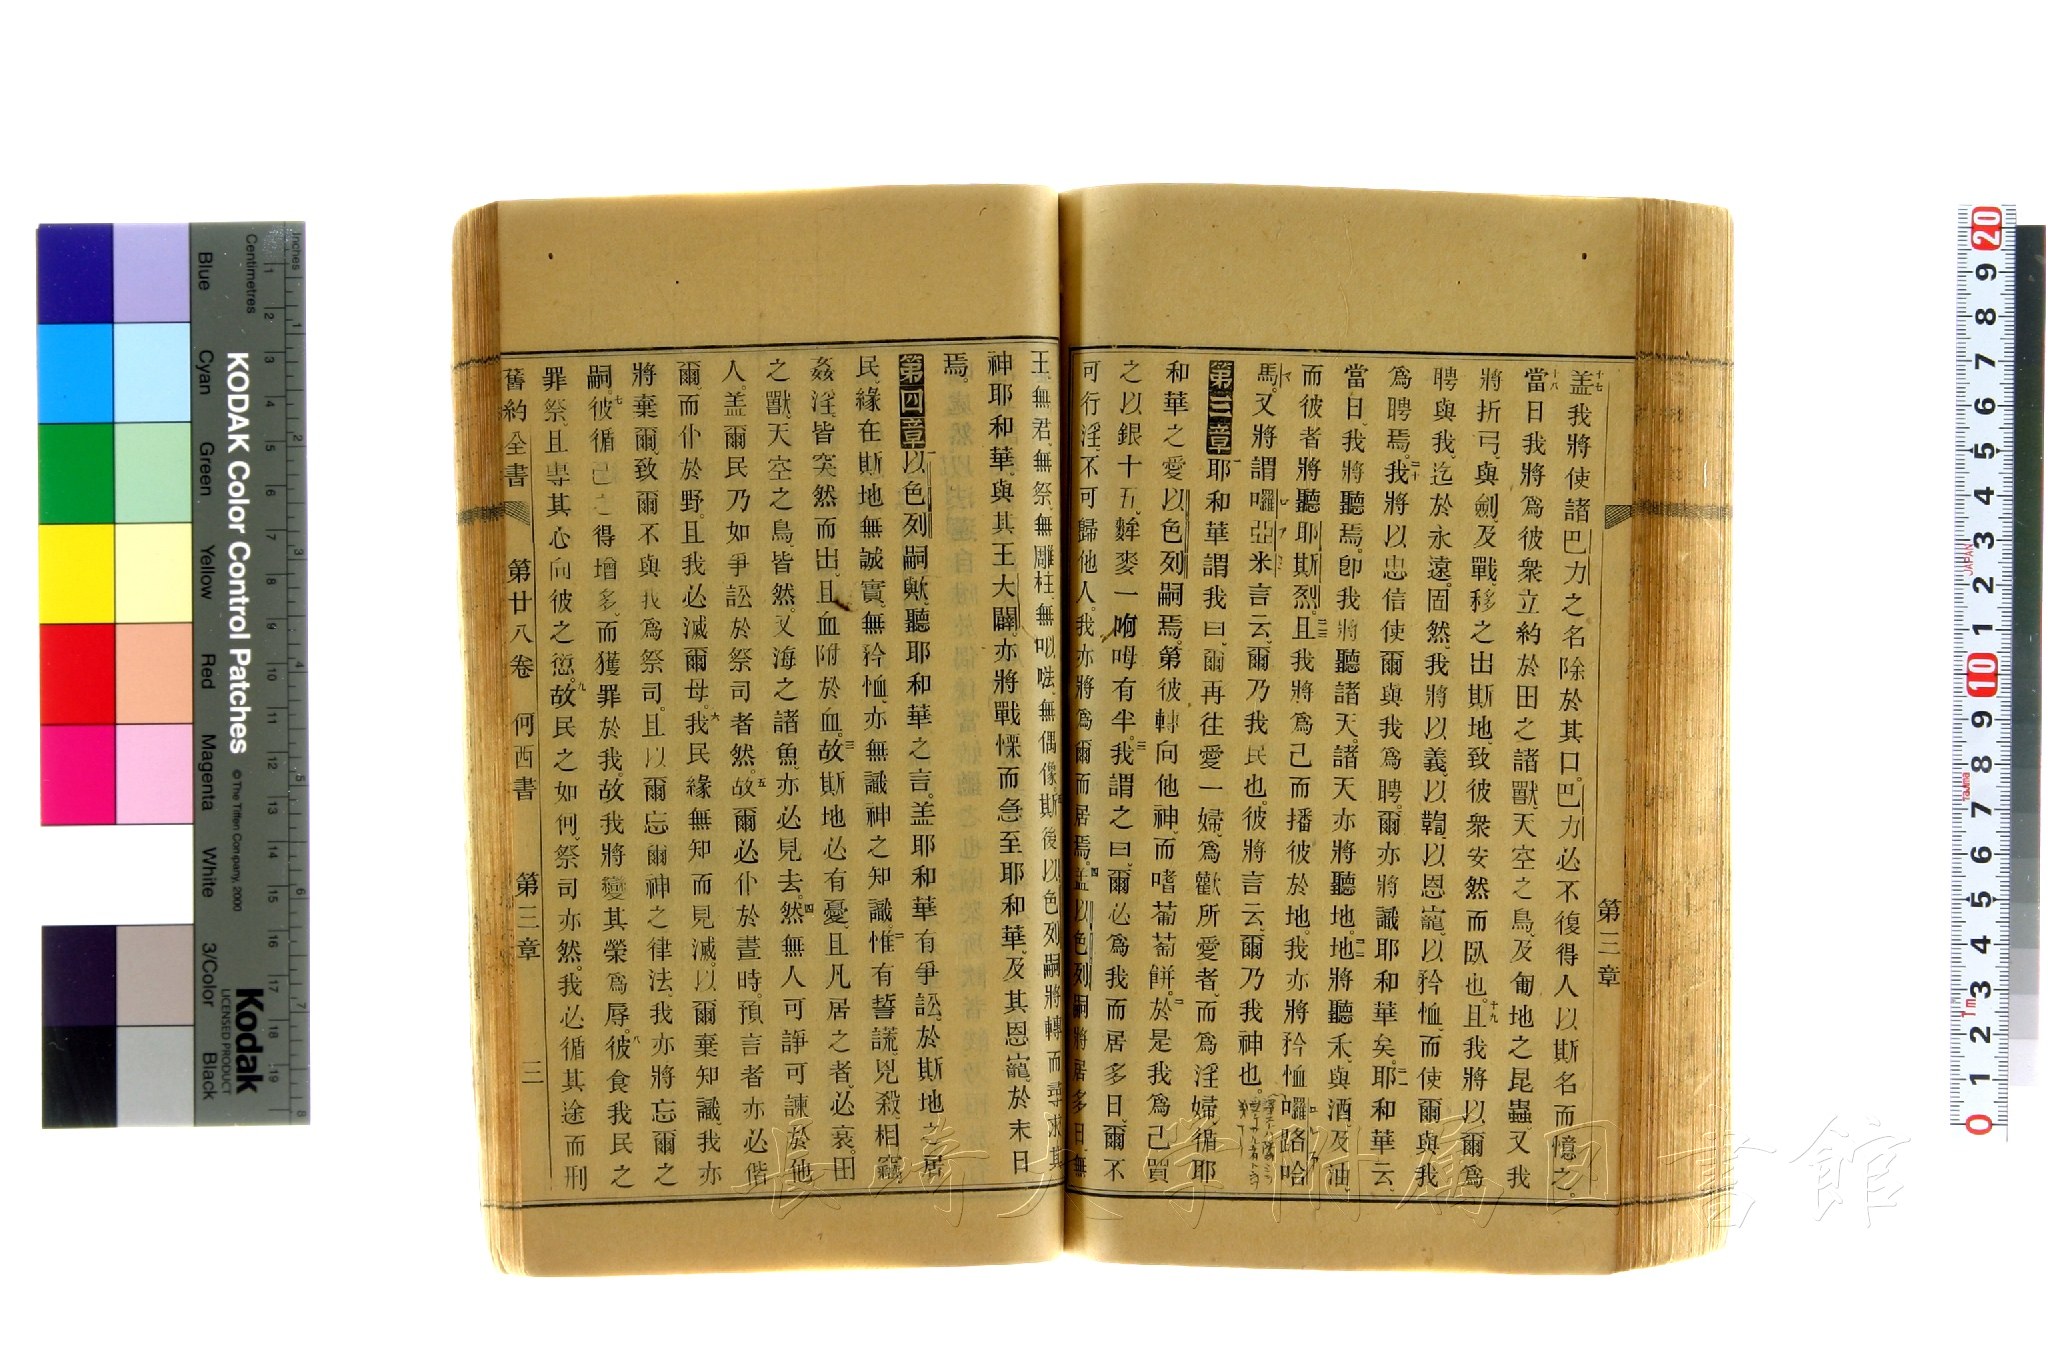 十七盖我將使諸巴力之名除於其口。巴力必不復得人以斯名而憶之。
十八當日我將爲彼衆立約於田之諸獸、天空之鳥、及匍地之昆蟲、又我
將折弓、與劍、及戰、移之出斯地、致彼衆安然而臥也。十九且我將以爾爲
聘與我、迄於永遠。固然、我將以義、以鞫、以恩寵、以矜恤、而使爾與我
爲聘焉。二十我將以忠信使爾與我爲聘。爾亦將識耶和華矣。二一耶和華云、
當日、我將聽焉。卽我將聽諸天。諸天亦將聽地。二二地將聽禾、與酒、及油、
而彼者將聽耶斯烈。二三且我將爲己而播彼於地。我亦將矜恤囉路哈
馬。又將謂囉亞米言云、爾乃我民也。彼將言云、爾乃我神也。
第三章 一耶和華謂我曰、爾再往愛一婦、爲歡所愛者、而爲淫婦、循耶
和華之愛以色列嗣焉。第彼轉向他神、而嗜葡萄餅。二於是我爲己買
之以銀十五、麰麥一㖕㖼有半。三我謂之曰、爾必爲我而居多日、爾不
可行淫、不可歸他人。我亦將爲爾而居焉。四盖以色列嗣將居多日、無
第三章
王、無君、無祭、無雕柱、無𠯁㗭、無偶像。五斯後以色列嗣將轉而尋求其
神耶和華、與其王大闢。亦將戰慄而急至耶和華、及其恩寵、於末日
焉。
第四章 一以色列嗣歟、聽耶和華之言。盖耶和華有爭訟、於斯地之居
民、緣在斯地無誠實、無矜恤、亦無識神之知識。二惟有誓謊、兇殺、相竊、
姦淫、皆突然而出、且血附於血。三故斯地必有憂、且凡居之者、必衰。田
之獸、天空之鳥、皆然。又海之諸魚、亦必見去。四然無人可諍可諫於他
人。盖爾民乃如爭訟於祭司者然。五故爾必仆於晝時。預言者亦必偕
爾、而仆於野。且我必滅爾母。六我民緣無知而見滅。以爾棄知識、我亦
將棄爾、致爾不與我爲祭司。且以爾忘爾神之律法、我亦將忘爾之
嗣。七彼循己之得增多、而獲罪於我。故我將變其榮爲辱。八彼食我民之
罪祭、且專其心向彼之愆。九故民之如何、祭司亦然。我必循其途而刑
舊約全書 第廿八卷 何西書 第三章 三
長崎大学附属図書館
KODAK Color Control Patches
© The Tiffen Company, 2000
Kodak
LICENSED PRODUCT
Blue
Cyan
Green
Yellow
Red
Magenta
White
3/Color
Black
Inches
Centimetres
1 2 3 4 5 6 7 8 9 10 11 12 13 14 15 16 17 18 19
1 2 3 4 5 6 7 8
20 9 8 7 6 5 4 3 2 1 10 9 8 7 6 5 4 3 2 1 0
JAPAN
Tajima
1m